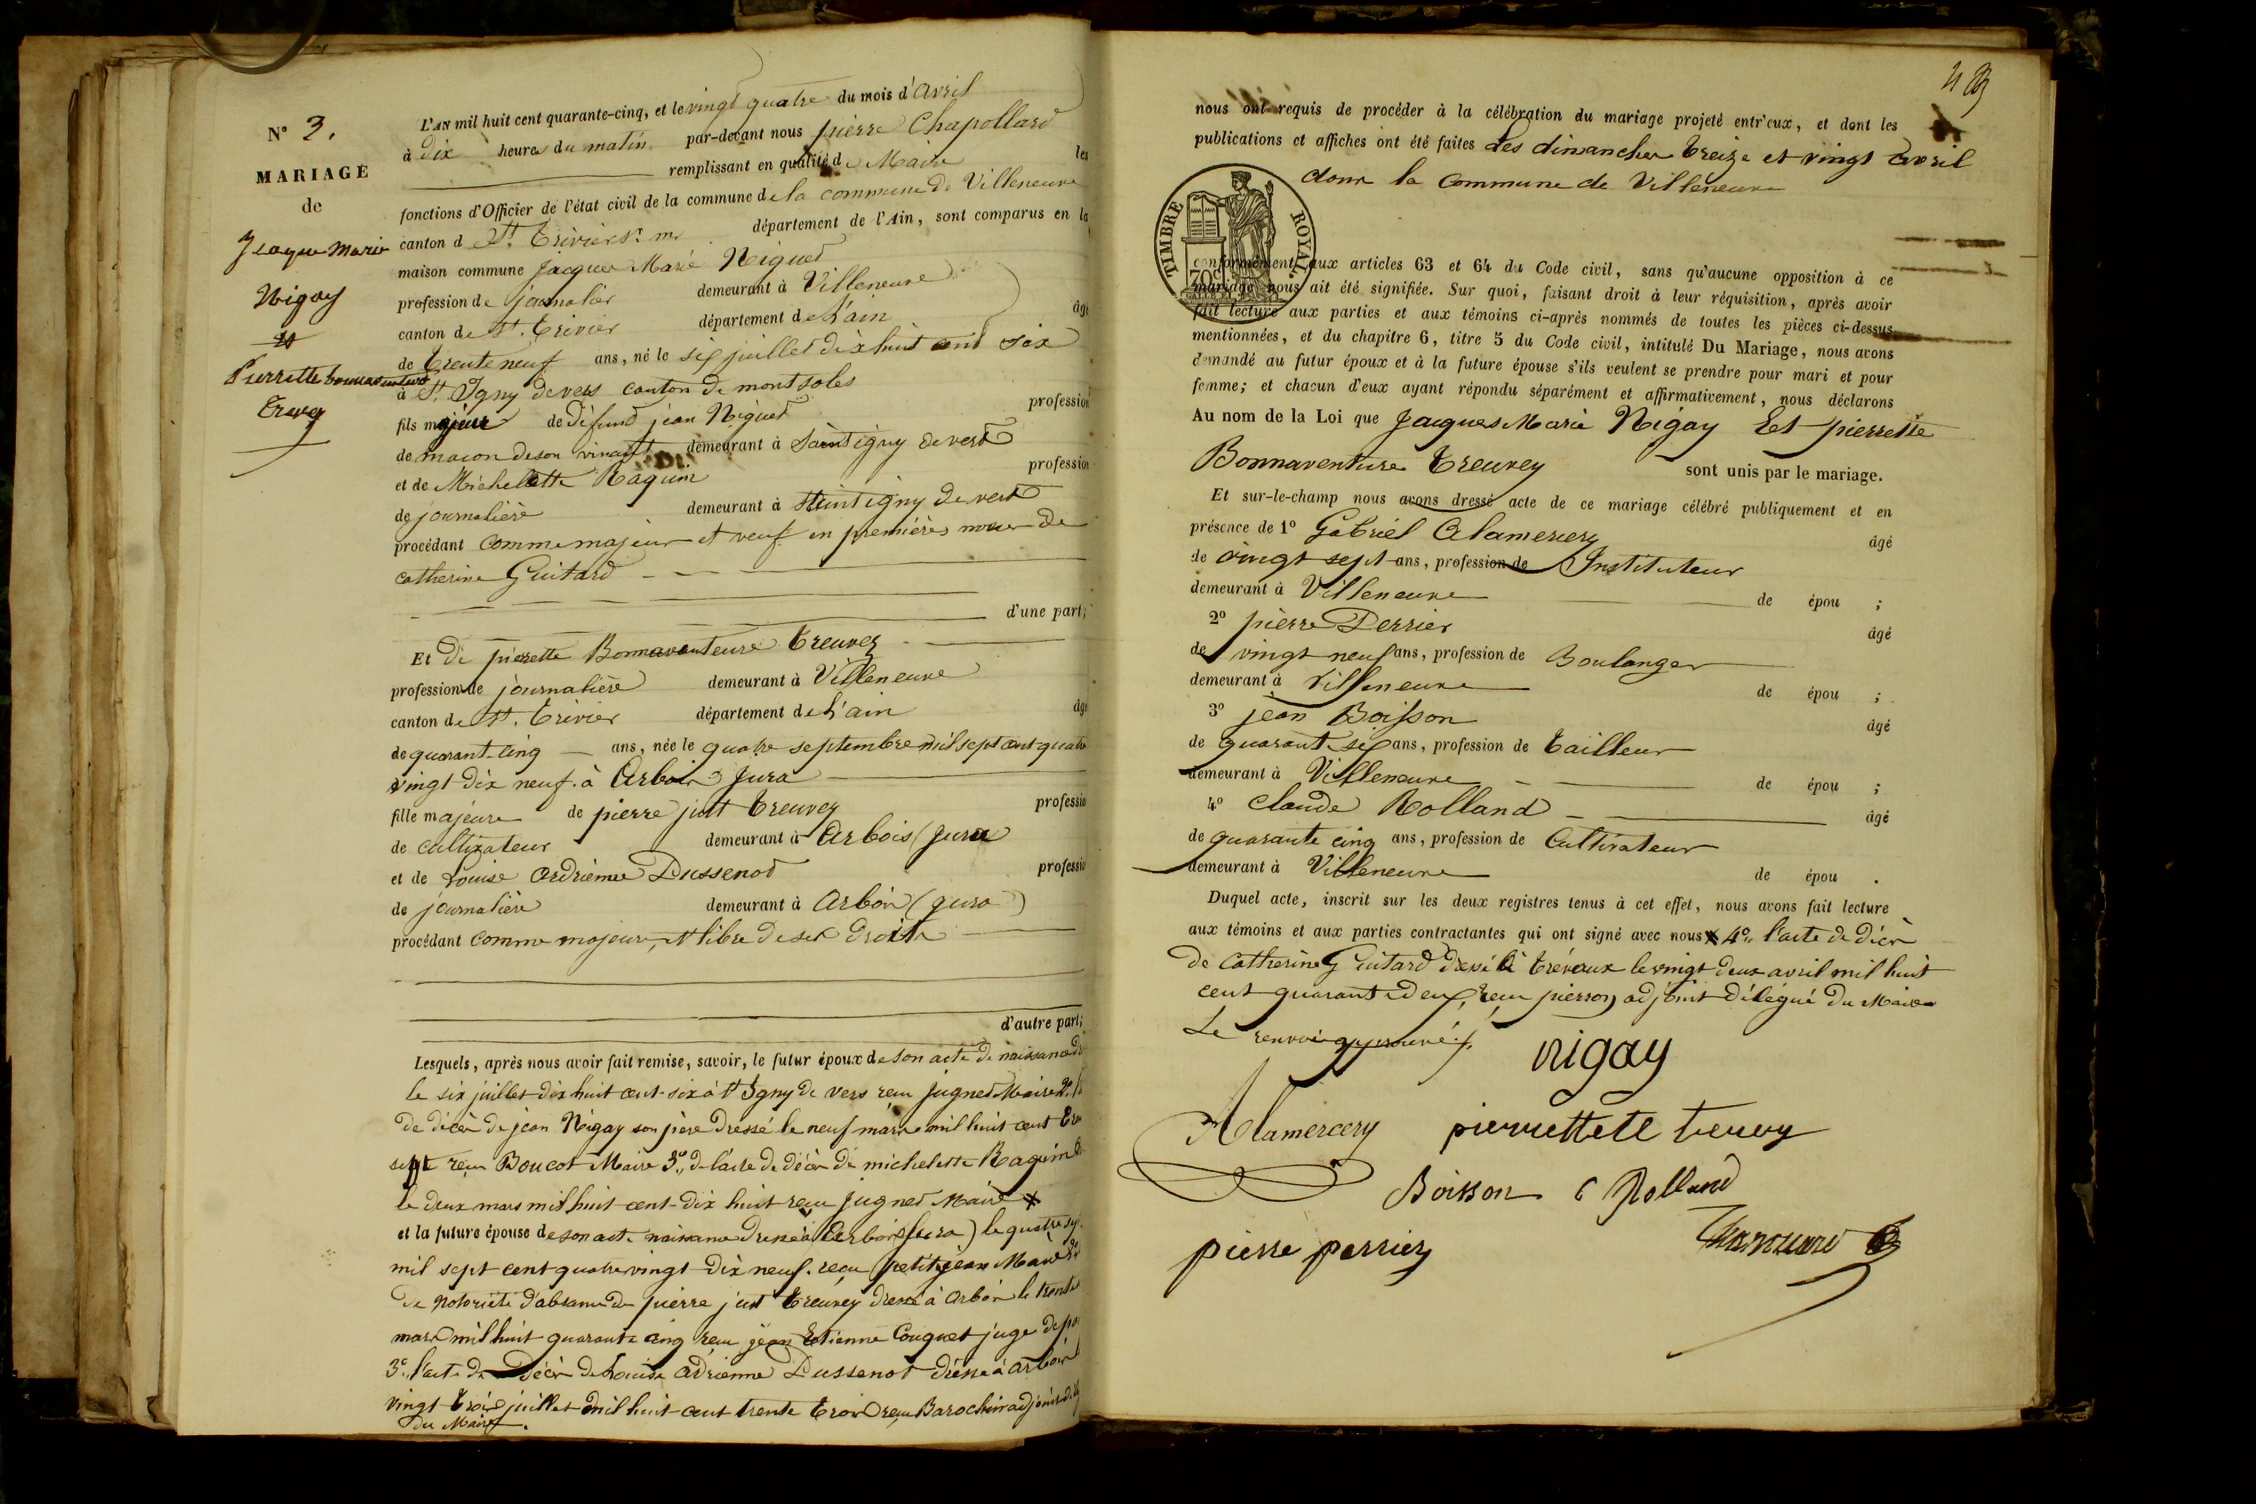 N° 3.
MARIAGE
de
Jacque Marie
Nigay
et
Pierrette bonnaventure
Trevey
L'AN mil huit cent quarante-cinq, et le vingt quatre du mois d'avril
à dix heures du matin par-devant nous pierre Chapollard
remplissant en qualité de Maire les
fonctions d'Officier de l'état civil de la commune de la commune de Villeneuve
canton d St. Trivier s. m. département de l'Ain, sont comparus en la
maison commune Jacques Marie Niguet
profession de journalier demeurant à Villeneuve
canton de St. Trivier département de L'ain âgé
de trente neuf ans, né le six juillet dix huit cent six
à St. Igny de vers canton de montsoles
fils majeur de Défunt jean Niguet profession
de maçon de son vivant demeurant à Saintigny de vert
et de Michelette Raguin profession
de journalière demeurant à Saintigny de vert
procédant comme majeur et veuf en premières noces de
catherine Guitard
d'une part;
Et De pierette Bonnaventeure Treuvey
profession de journalière demeurant à Villeneuve
canton de St. Trivier département de L'ain âgé
de quarant-cinq ans, née le quatre septembre mil sept cent quatre
vingt dix neuf à Arbois Jura
fille majeure de pierre just Treuvey profession
de cultivateur demeurant à Arbois (Jura
et de Louise Adrienne Dussenod profession
de journalière demeurant à Arbois (jura)
procédant comme majeure, et libre de ses droits
d'autre part;
Lesquels, après nous avoir fait remise, savoir, le futur époux de son acte de naissance
le six juillet dix huit cent six à St Igny de vers reçu jugnet Maire 2°
de décès de jean Nigay son père dressé le neuf mars mil huit cent
sept reçu Boucot Maire 3° de l'acte de décès de michelette Raguin
le deux mars mil huit cent dix huit reçu jugnet Maire
et la future épouse de son acte naissance dressé à Arbois (jura) le quatre
mil sept cent quatre vingt dix neuf reçu petitjean Maire
de notoriété d'absence de pierre just Treuvey dressé à Arbois le trente
mars mil huit quarante cinq reçu jean Etienne Couquet juge de
3° l'acte de Décès de Louise Adrienne Dussenot dressé à Arbois
vingt trois juillet mil huit cent trente trois reçu Barochin adjoint
du Maire.
nous ont requis de procéder à la célébration du mariage projeté entr'eux, et dont les
publications et affiches ont été faites les dimanches treize et vingt avril
dans la Commune de Villeneuve
TIMBRE ROYAL.
conformément aux articles 63 et 64 du Code civil, sans qu'aucune opposition à ce
mariage nous ait été signifiée. Sur quoi, faisant droit à leur réquisition, après avoir
fait lecture aux parties et aux témoins ci-après nommés de toutes les pièces ci-dessus
mentionnées, et du chapitre 6, titre 5 du Code civil, intitulé Du Mariage, nous avons
demandé au futur époux et à la future épouse s'ils veulent se prendre pour mari et pour
femme; et chacun d'eux ayant répondu séparément et affirmativement, nous déclarons
Au nom de la Loi que Jacques Marie Nigay Et pierrette
Bonnaventure Treuvey sont unis par le mariage.
Et sur-le-champ nous avons dressé acte de ce mariage célébré publiquement et en
présence de 1° Gabriel Alamercery âgé
de vingt sept ans, profession de Instituteur
demeurant à Villeneuve de épou ;
2° pierre Perrier âgé
de vingt neuf ans, profession de Boulanger
demeurant à Villeneuve de épou ;
3° jean Boisson âgé
de quarant six ans, profession de tailleur
demeurant à Villeneuve de épou ;
4° Claude Rolland âgé
de quarante cinq ans, profession de Cultivateur
demeurant à Villeneuve de épou .
Duquel acte, inscrit sur les deux registres tenus à cet effet, nous avons fait lecture
aux témoins et aux parties contractantes qui ont signé avec nous 4° l'acte de décès
de Catherine Guitard dressé à Trévoux le vingt deux avril mil huit
cent quarant deux, reçu pierron adjoint délégué du Maire
Le renvoi approuvé
nigay
Alamercery pierrette trevey
Boisson C Rolland
pierre perrier